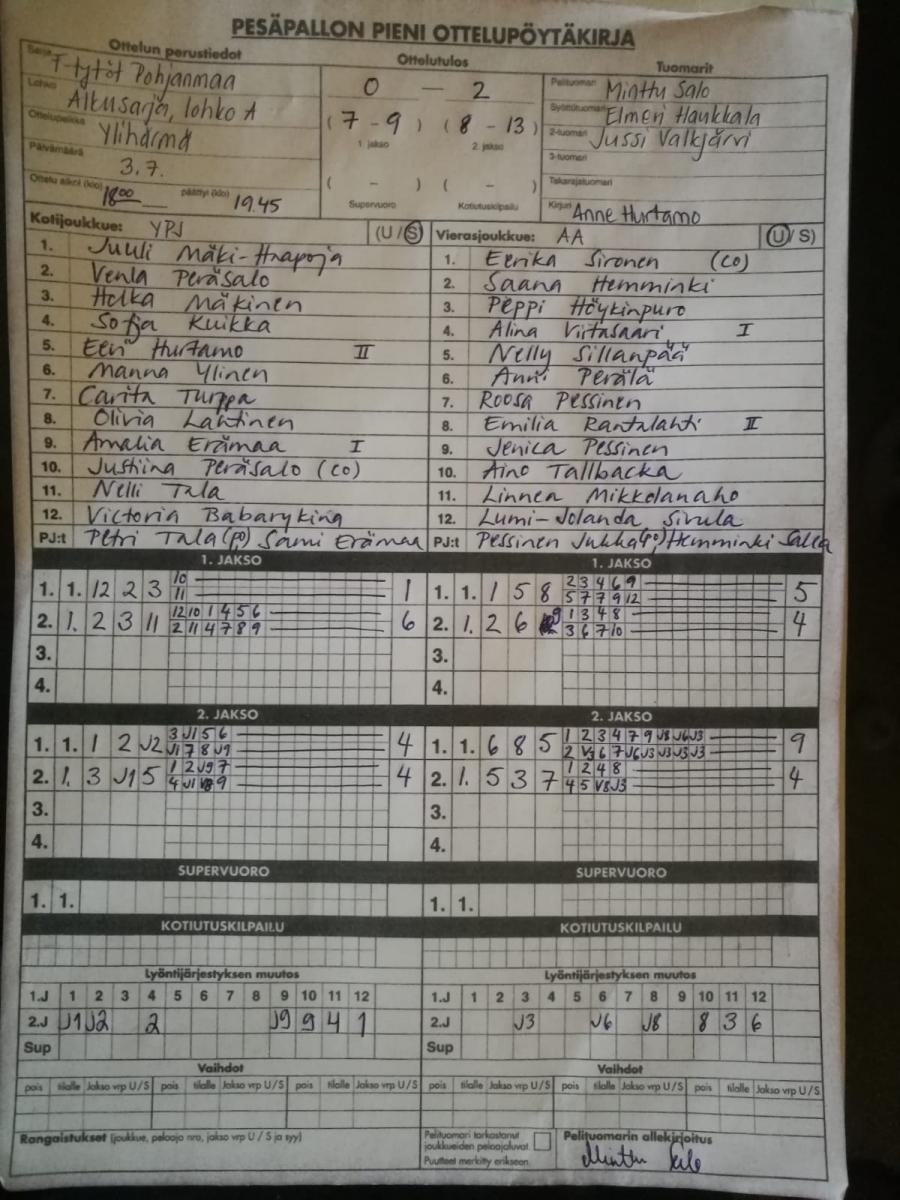 PESÄPALLON PIENI OTTELUPÖYTÄKIRJA
Ottelun perustiedot Ottelutulos Tuomarit
Sarja T-tytöt Pohjanmaa
Lohko Alkusarja, lohko A
Ottelupaikka Ylihärmä
Päivämäärä 3.7.
Ottelu alkoi (klo) 18.00 päättyi (klo) 19.45
0 — 2
(7 - 9) (8 - 13)
1. jakso 2. jakso
( - ) ( - )
Supervuoro Kotiutuskilpailu
Pelituomari Minttu Salo
Syöttötuomari Elmeri Haukkala
2-tuomari Jussi Valkjärvi
3-tuomari
Takarajatuomari
Kirjuri Anne Hurtamo
Kotijoukkue: YPJ (U/S)
1. Juuli Mäki-Haapoja
2. Venla Peräsalo
3. Helka Mäkinen
4. Sofja Kuikka
5. Eeri Hurtamo II
6. Manna Ylinen
7. Carita Turppa
8. Olivia Lahtinen
9. Amalia Erämaa I
10. Justiina Peräsalo (CO)
11. Nelli Tala
12. Victoria Babarykina
PJ:t Petri Tala (PO) Sami Erämaa
Vierasjoukkue: AA (U/S)
1. Eerika Sironen (CO)
2. Saana Hemminki
3. Peppi Höykinpuro
4. Alina Virtasaari I
5. Nelly Sillanpää
6. Anni Perälä
7. Roosa Pessinen
8. Emilia Rantalahti II
9. Jenica Pessinen
10. Aino Tallbacka
11. Linnea Mikkolanaho
12. Lumi-Jolanda Sivula
PJ:t Pessinen Jukka (PO), Hemminki Salla
1. JAKSO 1. JAKSO
1. 1. 12 2 3 10 11 1
2. 1. 2 3 11 12 10 1 4 5 6 2 11 4 7 8 9 6
3.
4.
1. 1. 1 5 8 2 3 4 6 9 5 7 7 9 12 5
2. 1. 2 6 9 1 3 4 8 3 6 7 10 4
3.
4.
2. JAKSO 2. JAKSO
1. 1. 1 2 J2 3 J1 5 6 J1 7 8 J9 4
2. 1. 3 J1 5 1 2 J9 7 4 J1 9 4
3.
4.
1. 1. 6 8 5 1 2 3 4 7 9 J8 J6 J3 2 V3 6 7 J6 J3 J3 J3 J3 9
2. 1. 5 3 7 1 2 4 8 4 5 V8 J3 4
3.
4.
SUPERVUORO SUPERVUORO
1. 1. 1. 1.
KOTIUTUSKILPAILU KOTIUTUSKILPAILU
Lyöntijärjestyksen muutos Lyöntijärjestyksen muutos
1.J 1 2 3 4 5 6 7 8 9 10 11 12 1.J 1 2 3 4 5 6 7 8 9 10 11 12
2.J J1 J2 2 J9 9 4 1 2.J J3 J6 J8 8 3 6
Sup Sup
Vaihdot Vaihdot
pois tilalle Jakso vrp U/S pois tilalle Jakso vrp U/S pois tilalle Jakso vrp U/S pois tilalle Jakso vrp U/S pois tilalle Jakso vrp U/S pois tilalle Jakso vrp U/S
Rangaistukset (joukkue, pelaaja nro, jakso vrp U / S ja syy)
Pelituomari tarkastanut
joukkueiden pelaajaluvat.
Puutteet merkitty erikseen.
Pelituomarin allekirjoitus
Minttu Salo